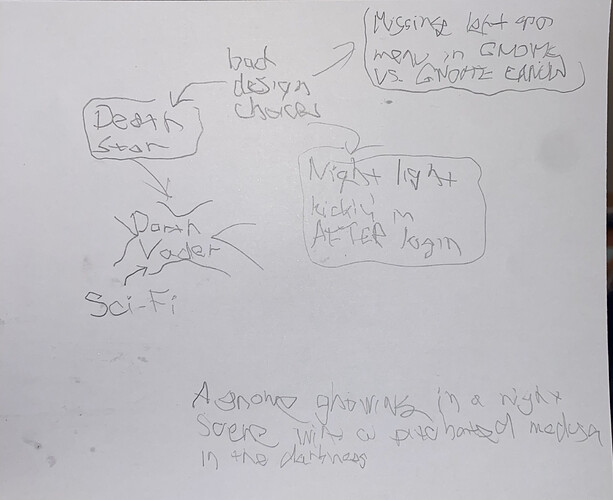 bad
design
choices
Missing left
menu in GNOME
VS. GNOME
Death
Star
Night light
kickin' in
AFTER login
Darth
Vader
Sci-Fi
A gnome glowing in a night
Scene with a medusa
in the darkness